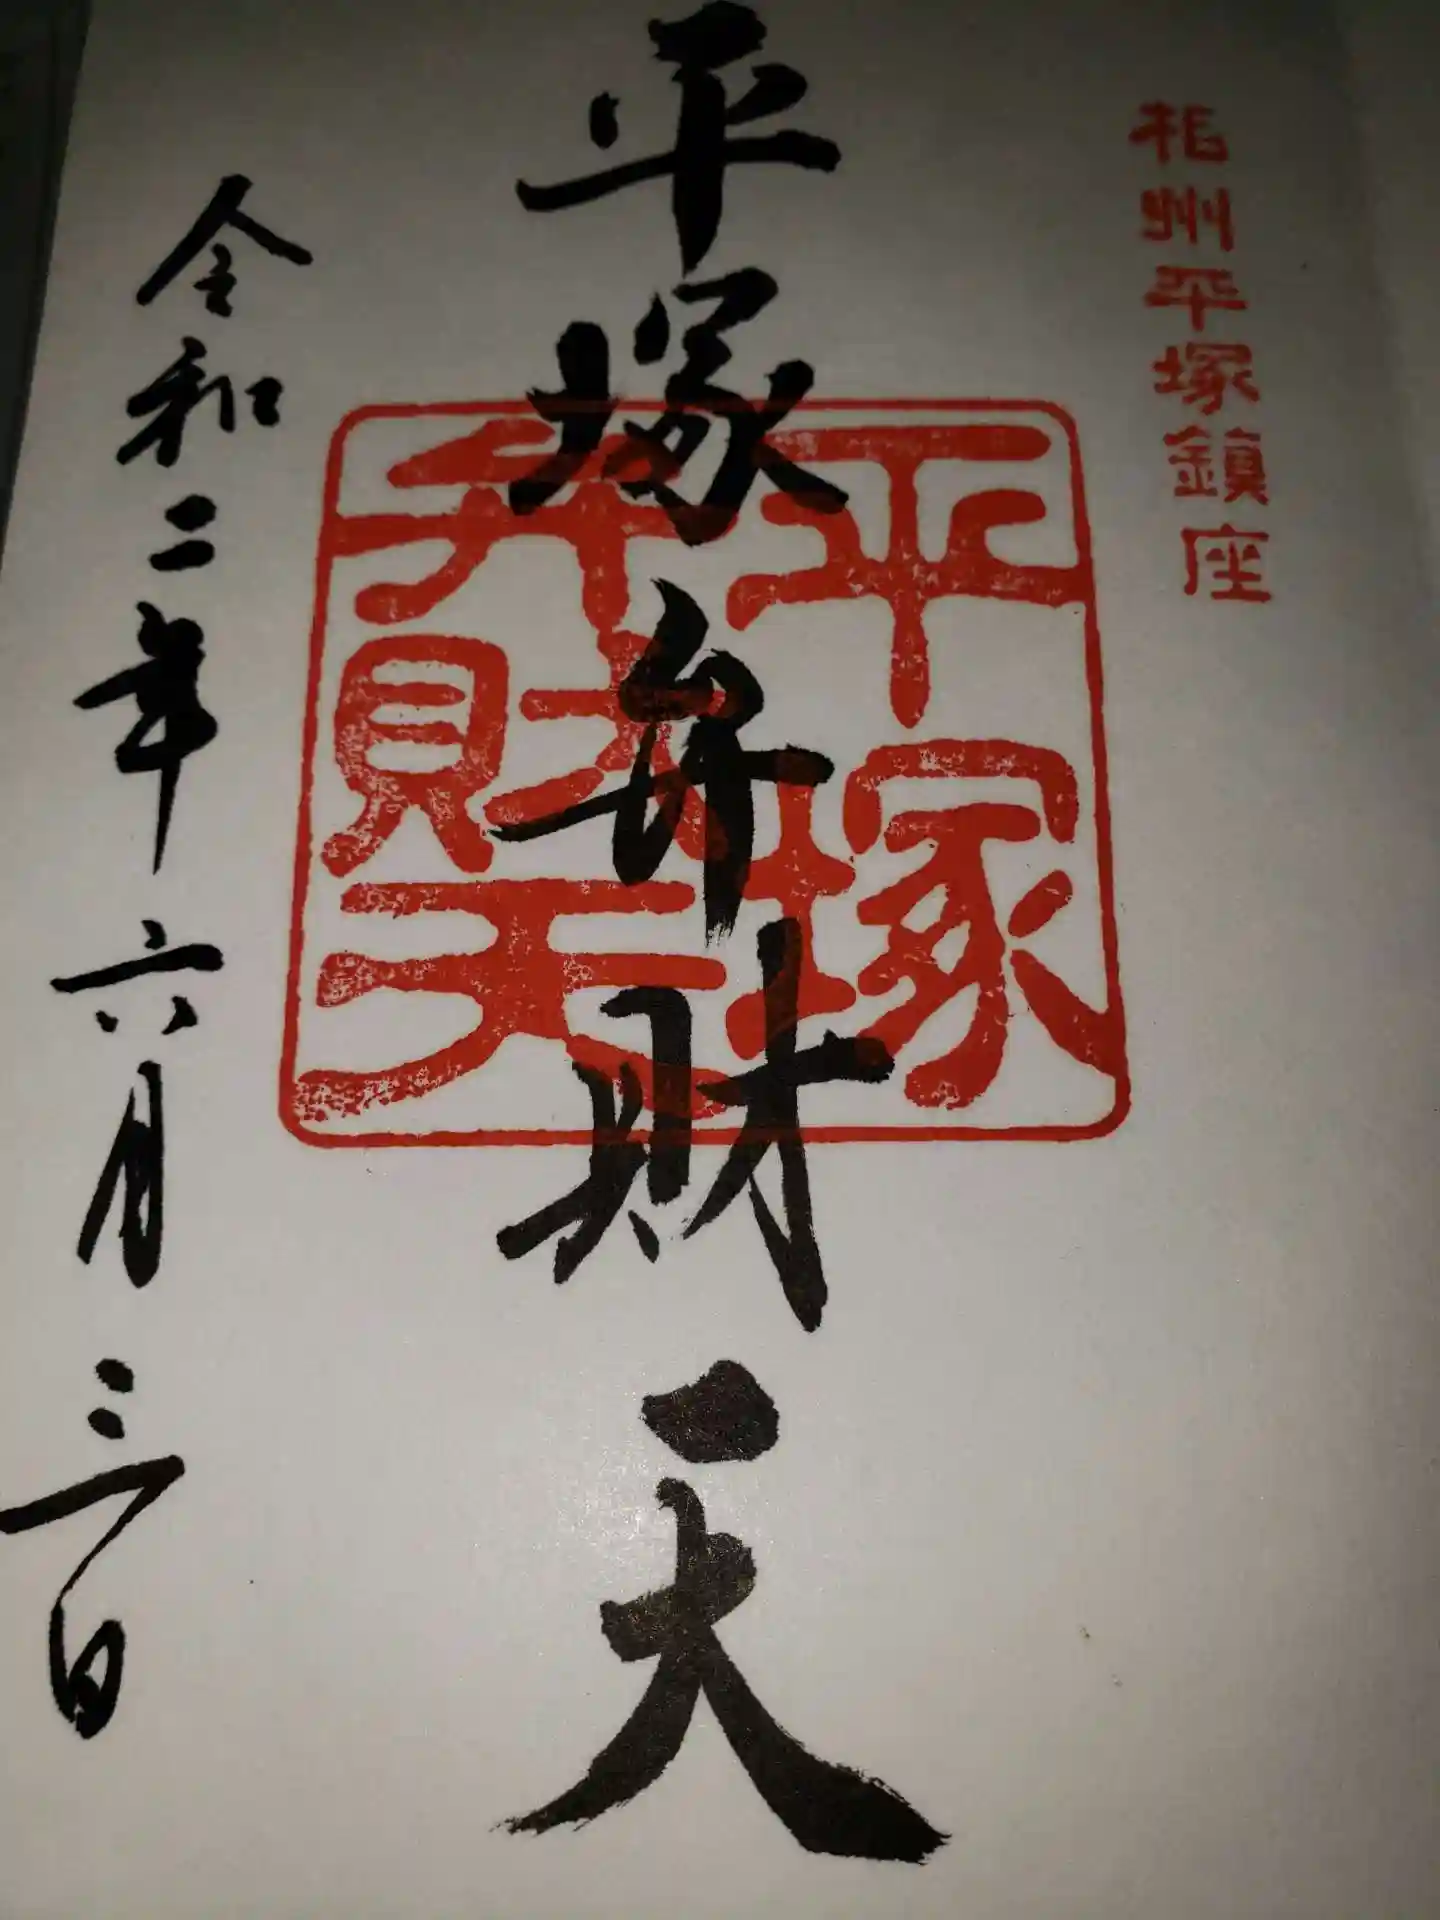 相州平塚鎮座
平塚弁財天
平塚
弁財天
令和二年六月三日